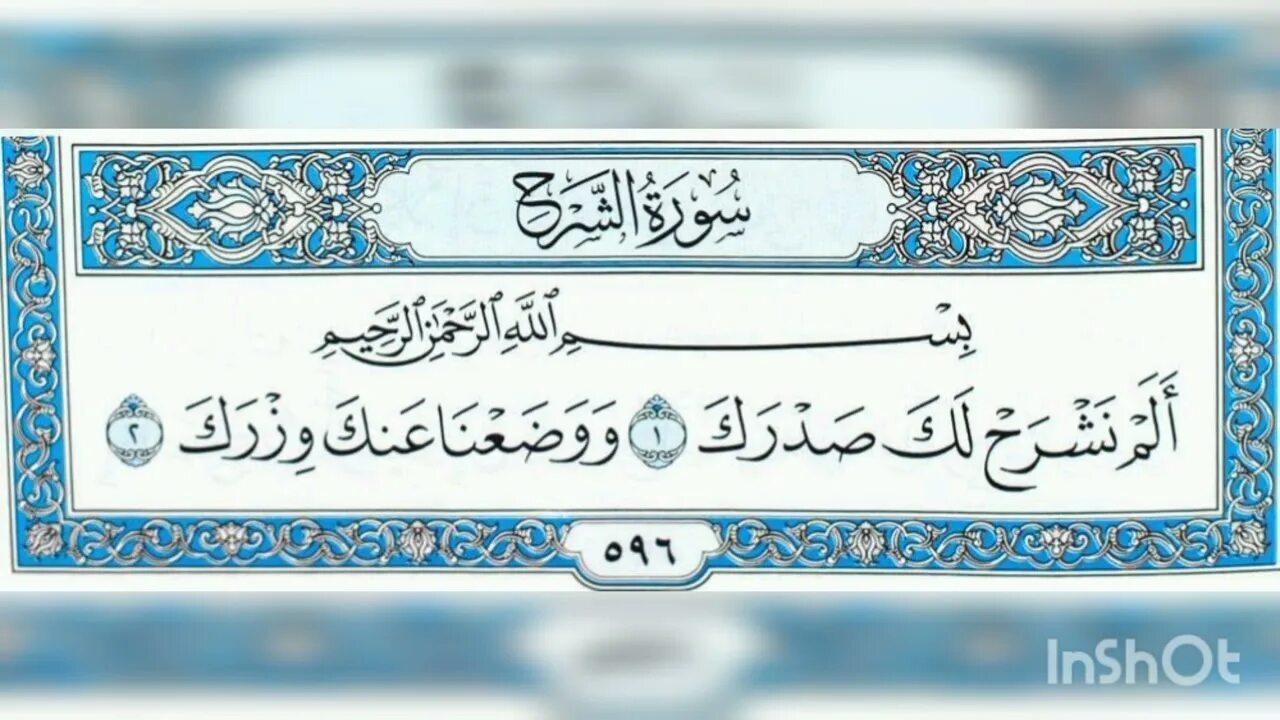 سُورَةُ الشَّرْحِ
بِسْمِ ٱللَّهِ ٱلرَّحْمَٰنِ ٱلرَّحِيمِ
أَلَمْ نَشْرَحْ لَكَ صَدْرَكَ ١ وَوَضَعْنَا عَنكَ وِزْرَكَ ٢
٥٩٦
InShOt